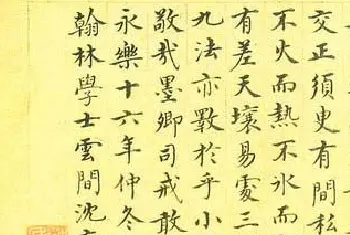 交正須臾有間私
不火而熱不冰而
有差天壤易處三
九法亦斁於乎小
敬哉墨卿司戒敢
永樂十六年仲冬
翰林學士雲間沈